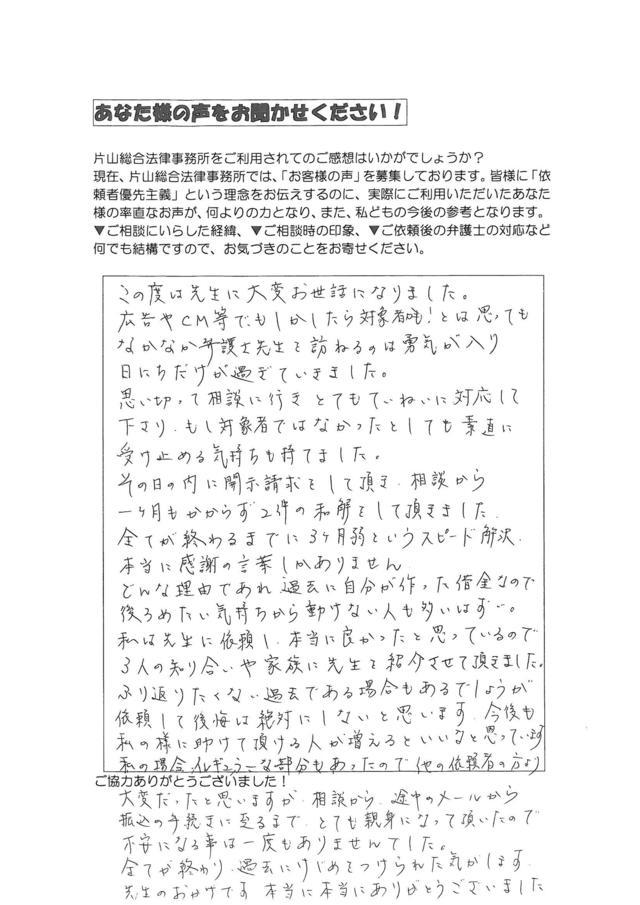 あなた様の声をお聞かせください！
片山総合法律事務所をご利用されてのご感想はいかがでしょうか？
現在、片山総合法律事務所では、「お客様の声」を募集しております。皆様に「依
頼者優先主義」という理念をお伝えするのに、実際にご利用いただいたあなた
様の率直なお声が、何よりの力となり、また、私どもの今後の参考となります。
▼ご相談にいらした経緯、▼ご相談時の印象、▼ご依頼後の弁護士の対応など
何でも結構ですので、お気づきのことをお寄せください。
この度は先生に大変お世話になりました。
広告やCM等でもしかしたら対象者かも！とは思っても
なかなか弁護士先生を訪ねるのは勇気が入り
日にちだけが過ぎていきました。
思い切って相談に行き とてもていねいに対応して
下さり、もし対象者ではなかったとしても素直に
受け止める気持ちも持てました。
その日の内に開示請求をして頂き、相談から
一ヶ月もかからず2件の和解をして頂きました
全てが終わるまでに3ヶ月弱というスピード解決、
本当に感謝の言葉しかありません
どんな理由であれ過去に自分が作った借金なので
後ろめたい気持ちから動けない人も多いはず…。
私は先生に依頼し、本当に良かったと思っているので
3人の知り合いや家族に先生を紹介させて頂きました。
ふり返りたくない過去である場合もあるでしょうが
依頼して後悔は絶対にしないと思います。今後も
私の様に助けて頂ける人が増えるといいなと思っています
私の場合、イレギュラーな部分もあったので他の依頼者の方より
ご協力ありがとうございました！
大変だったと思いますが、相談から、途中のメールから
振込の手続きに至るまで、とても親身になって頂いたので
不安になる事は一度もありませんでした。
全てが終わり、過去にけじめをつけられた気がします。
先生のおかげです 本当に本当にありがとうございました